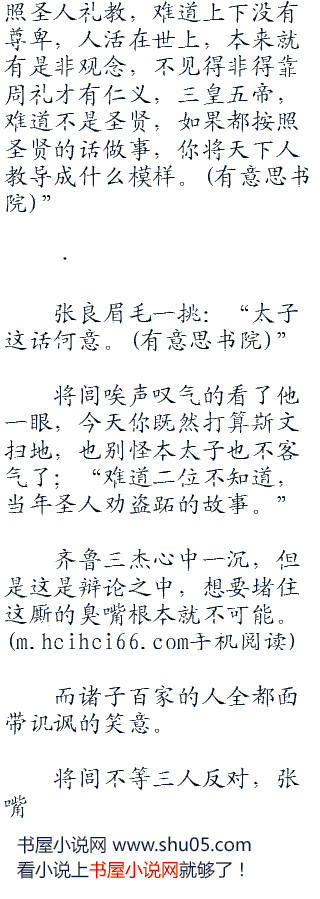 照圣人礼教，难道上下没有
尊卑，人活在世上，本来就
有是非观念，不见得非得靠
周礼才有仁义，三皇五帝，
难道不是圣贤，如果都按照
圣贤的话做事，你将天下人
教导成什么模样。(有意思书
院)”
.
张良眉毛一挑：“太子
这话何意。(有意思书院)”
将闾唉声叹气的看了他
一眼，今天你既然打算斯文
扫地，也别怪本太子也不客
气了；“难道二位不知道，
当年圣人劝盗跖的故事。”
齐鲁三杰心中一沉，但
是这是辩论之中，想要堵住
这厮的臭嘴根本就不可能。
(m.hcihci66.com手机阅读)
而诸子百家的人全都面
带讥讽的笑意。
将闾不等三人反对，张
嘴
书屋小说网 www.shu05.com
看小说上书屋小说网就够了！